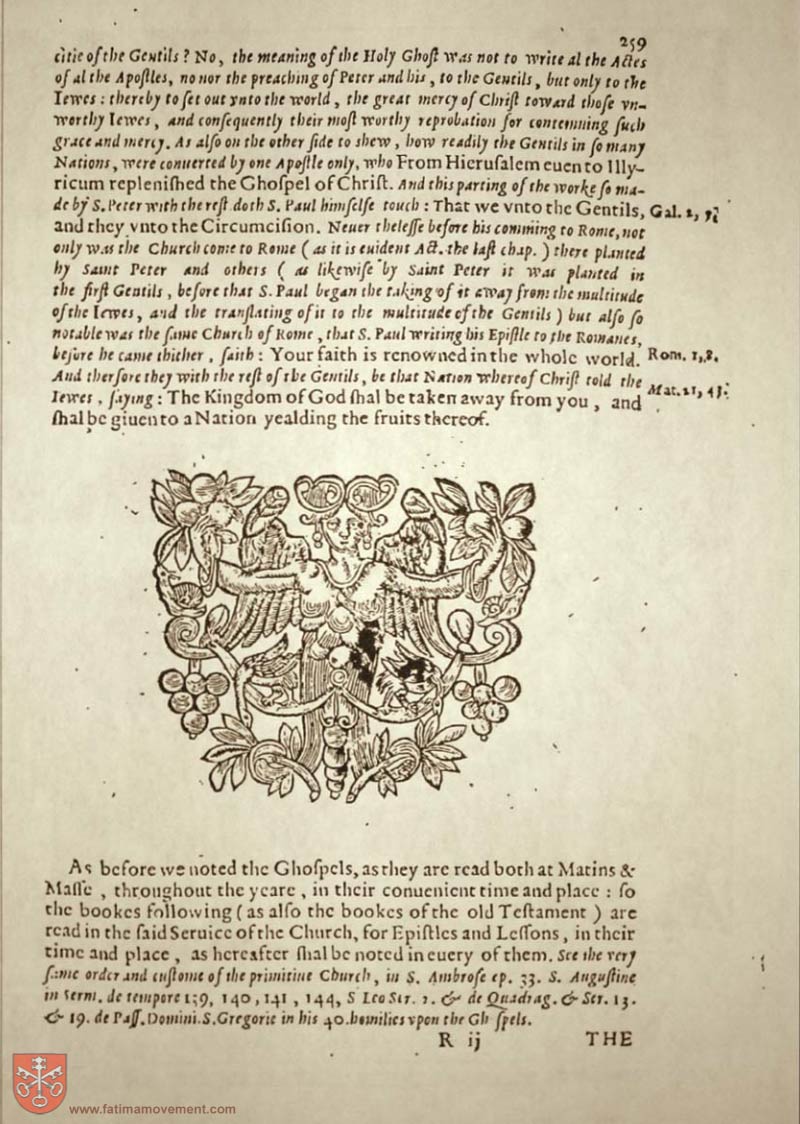 259
citie of the Gentils? No, the meaning of the Holy Ghoſt was not to write al the Actes
of al the Apoſtles, no nor the preaching of Peter and his, to the Gentils, but only to the
Iewes: thereby to ſet out vnto the world, the great mercy of Chriſt toward thoſe vn-
worthy Iewes, and conſequently their moſt worthy reprobation for contemning ſuch
grace and mercy. As alſo on the other ſide to shew, how readily the Gentils in ſo many
Nations, were conuerted by one Apoſtle only, who From Hieruſalem euen to Illy-
ricum repleniſhed the Ghoſpel of Chriſt. And this parting of the worke ſo ma-
de by S. Peter with the reſt doth S. Paul himſelfe touch: That we vnto the Gentils, Gal. 2,
and they vnto the Circumciſion. Neuer theleſſe before his comming to Rome, not
only was the Church come to Rome (as it is euident Act. the laſt chap.) there planted
by Saint Peter and others (as likewiſe by Saint Peter it was planted in
the firſt Gentils, before that S. Paul began the taking of it away from the multitude
of the Iewes, and the tranſlating of it to the multitude of the Gentils) but alſo ſo
notable was the ſame Church of Rome, that S. Paul writing his Epiſtle to the Romanes,
before he came thither, ſaith: Your faith is renowned in the whole world. Rom. 1, 8.
And therfore they with the reſt of the Gentils, be that Nation whereof Chriſt told the
Iewes, ſaying: The Kingdom of God ſhal be taken away from you, and Mat. 21, 43.
ſhal be giuen to a Nation yealding the fruits thereof.
As before we noted the Ghoſpels, as they are read both at Matins &
Maſſe, throughout the yeare, in their conuenient time and place: ſo
the bookes following (as alſo the bookes of the old Teſtament) are
read in the ſaid Seruice of the Church, for Epiſtles and Leſſons, in their
time and place, as hereafter ſhal be noted in euery of them. See the very
ſame order and cuſtome of the primitiue Church, in S. Ambroſe ep. 33. S. Auguſtine
in Serm. de tempore 139, 140, 141, 144, S Leo Ser. 2. & de Quadrag. & Ser. 13.
& 19. de Paſſ. Domini. S. Gregorie in his 40. homilies vpon the Gh ſpels.
R ij THE
www.fatimamovement.com